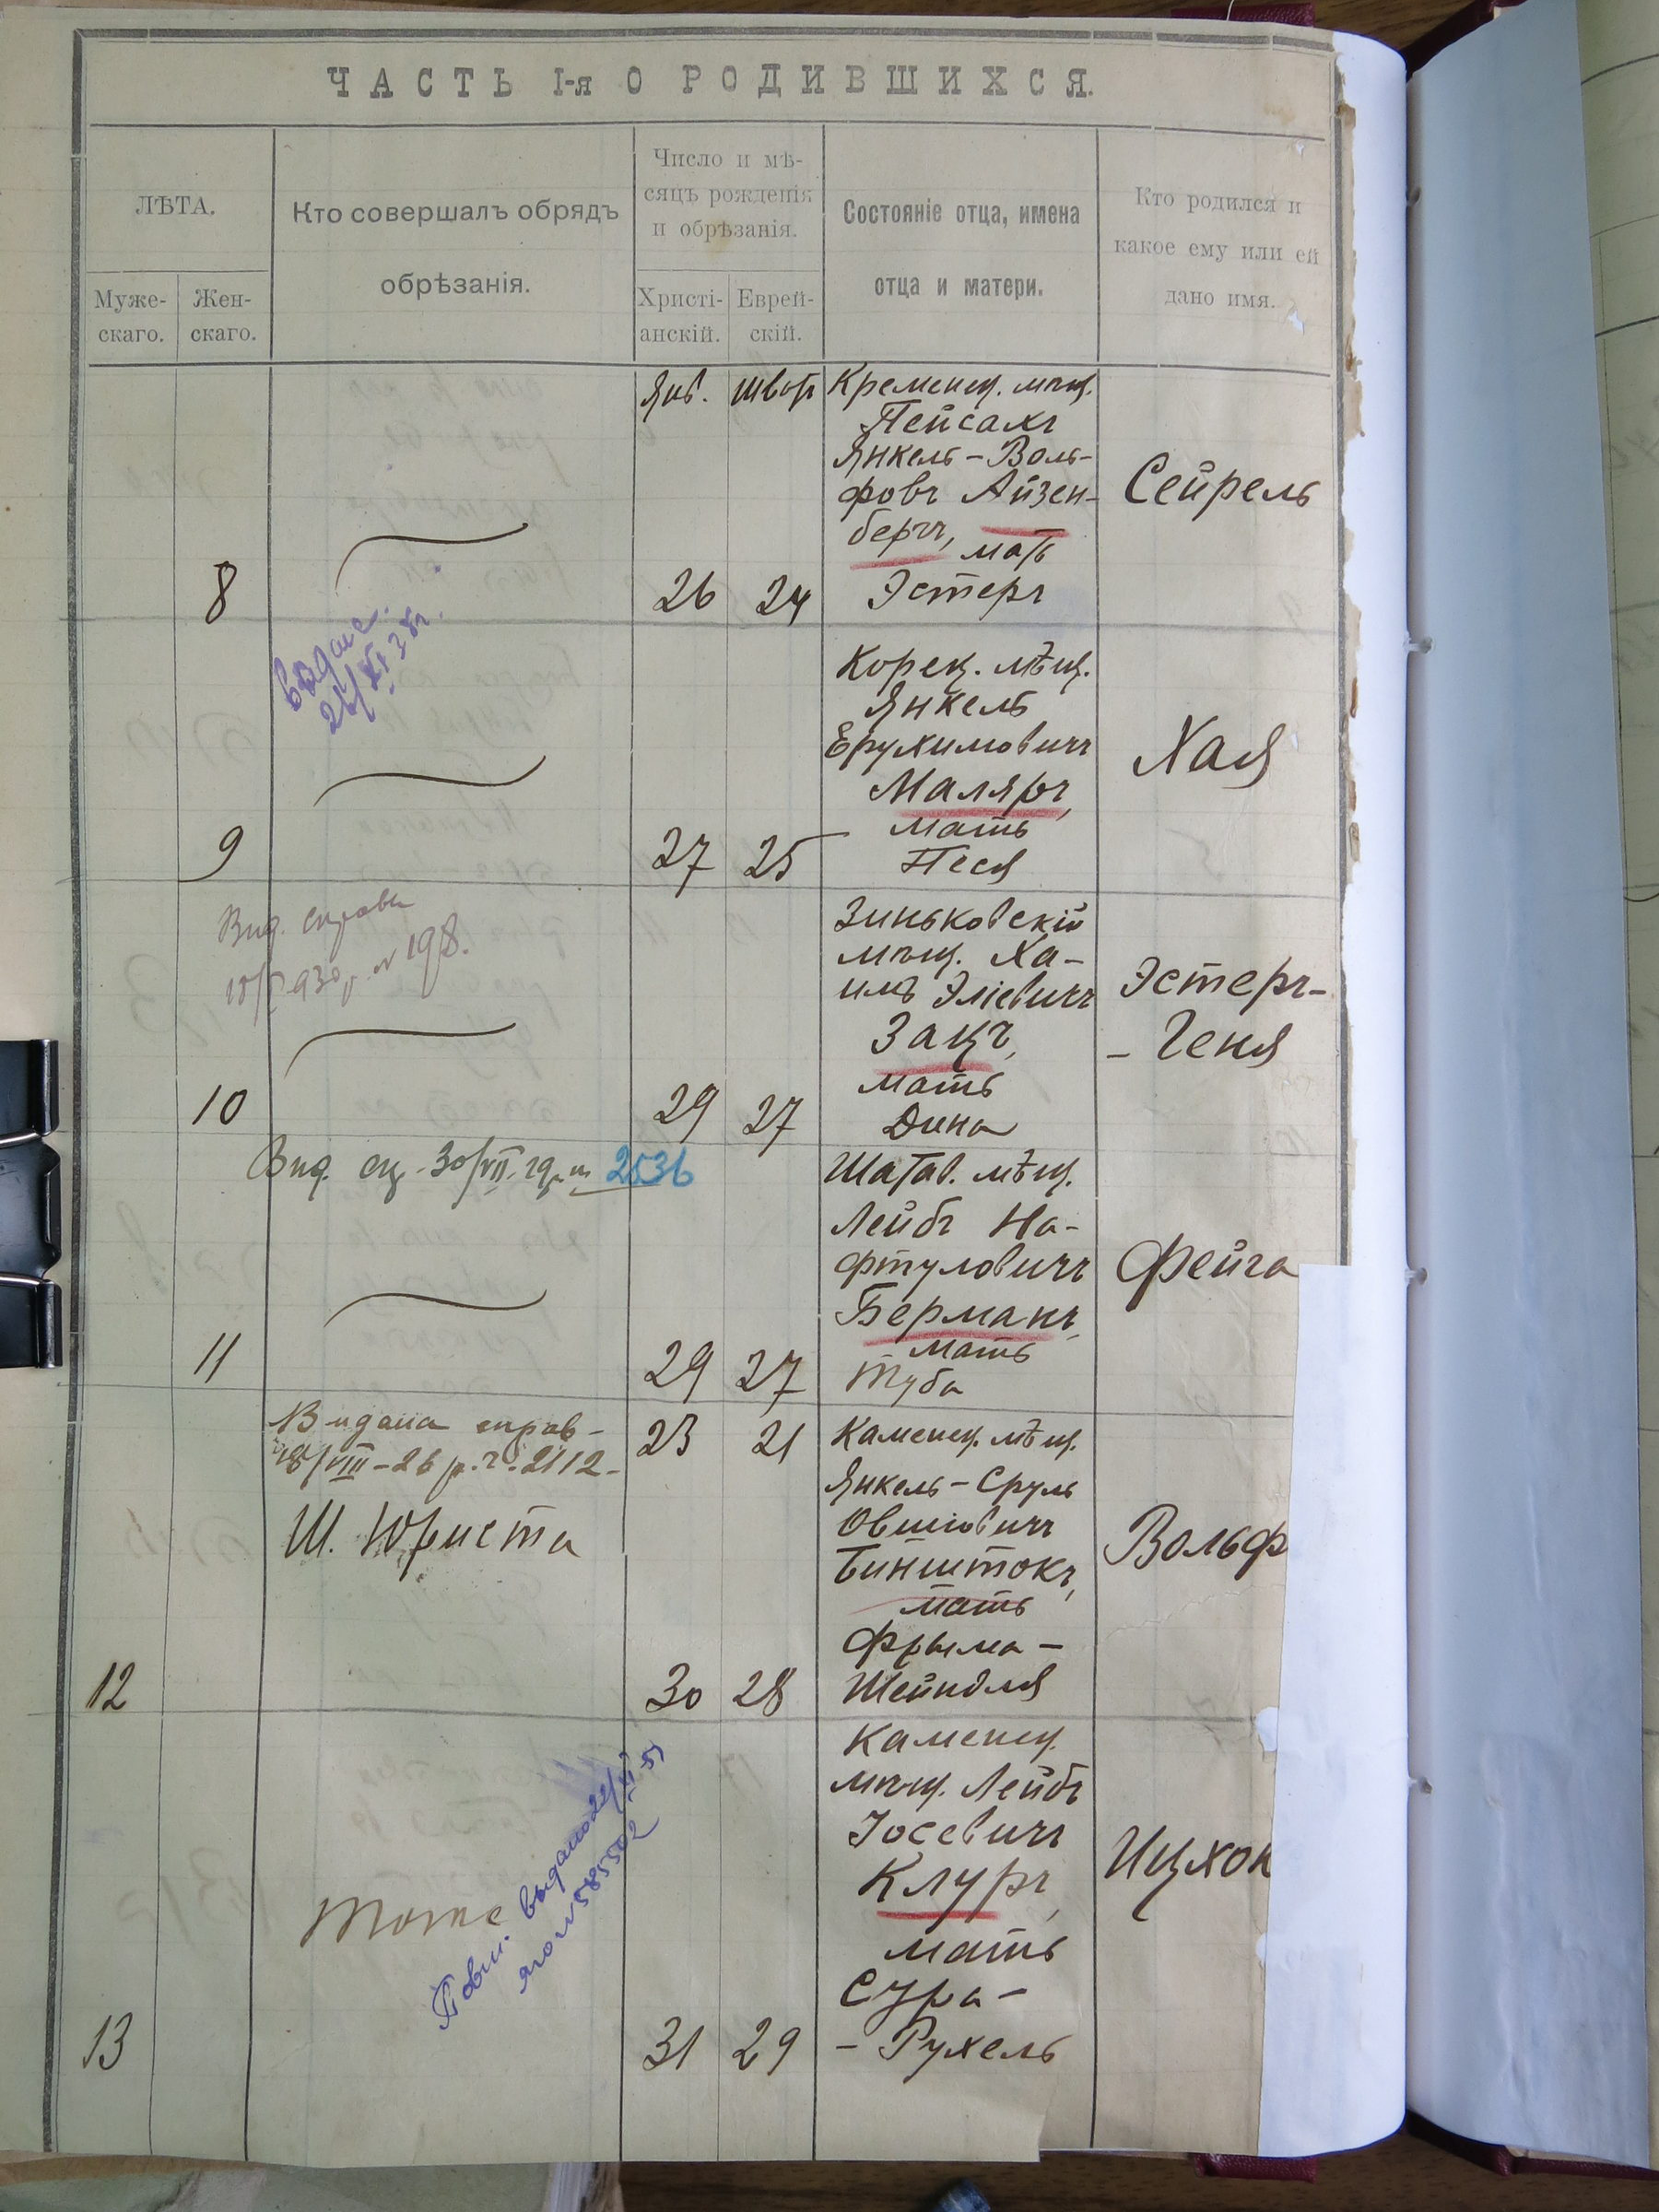 ЧАСТЬ I-я О РОДИВШИХСЯ.
ЛѢТА.
Муже-
скаго.
Жен-
скаго.
Кто совершалъ обрядъ
обрѣзанія.
Число и мѣ-
сяцъ рожденія
и обрѣзанія.
Христі-
анскій.
Еврей-
скій.
Состояніе отца, имена
отца и матери.
Кто родился и
какое ему или ей
дано имя.
8
Янв.
26
Швотъ
24
Кременец. мѣщ.
Пейсахъ
Янкель-Воль-
фовъ Айзен-
бергъ, мать
Эстеръ
Сейрель
9
27
25
Корец. мѣщ.
Янкель
Ерухимовичъ
Маляръ,
мать
Песя
Хая
Вид. справк
N 198.
10
29
27
Зиньковскій
мѣщ. Ха-
имъ Эліевичъ
Зацъ,
мать
Дина
Эстеръ-
- Геня
Вид. 30/VII 2536
11
29
27
Шатав. мѣщ.
Лейбъ На-
фтуловичъ
Берманъ,
мать
Туба
Фейга
Видана справ-
18/VIII-26 р. Ч. 2112-
Ш. Юриста
12
23
30
21
28
Каменец. мѣщ.
Янкель-Сруль
Овшіовичъ
Бинштокъ,
мать
Фрыма-
Шейндля
Вольф
Тоже
13
31
29
Каменец.
мѣщ. Лейбъ
Іосевичъ
Клуръ,
мать
Сура-
- Рухель
Ицхок